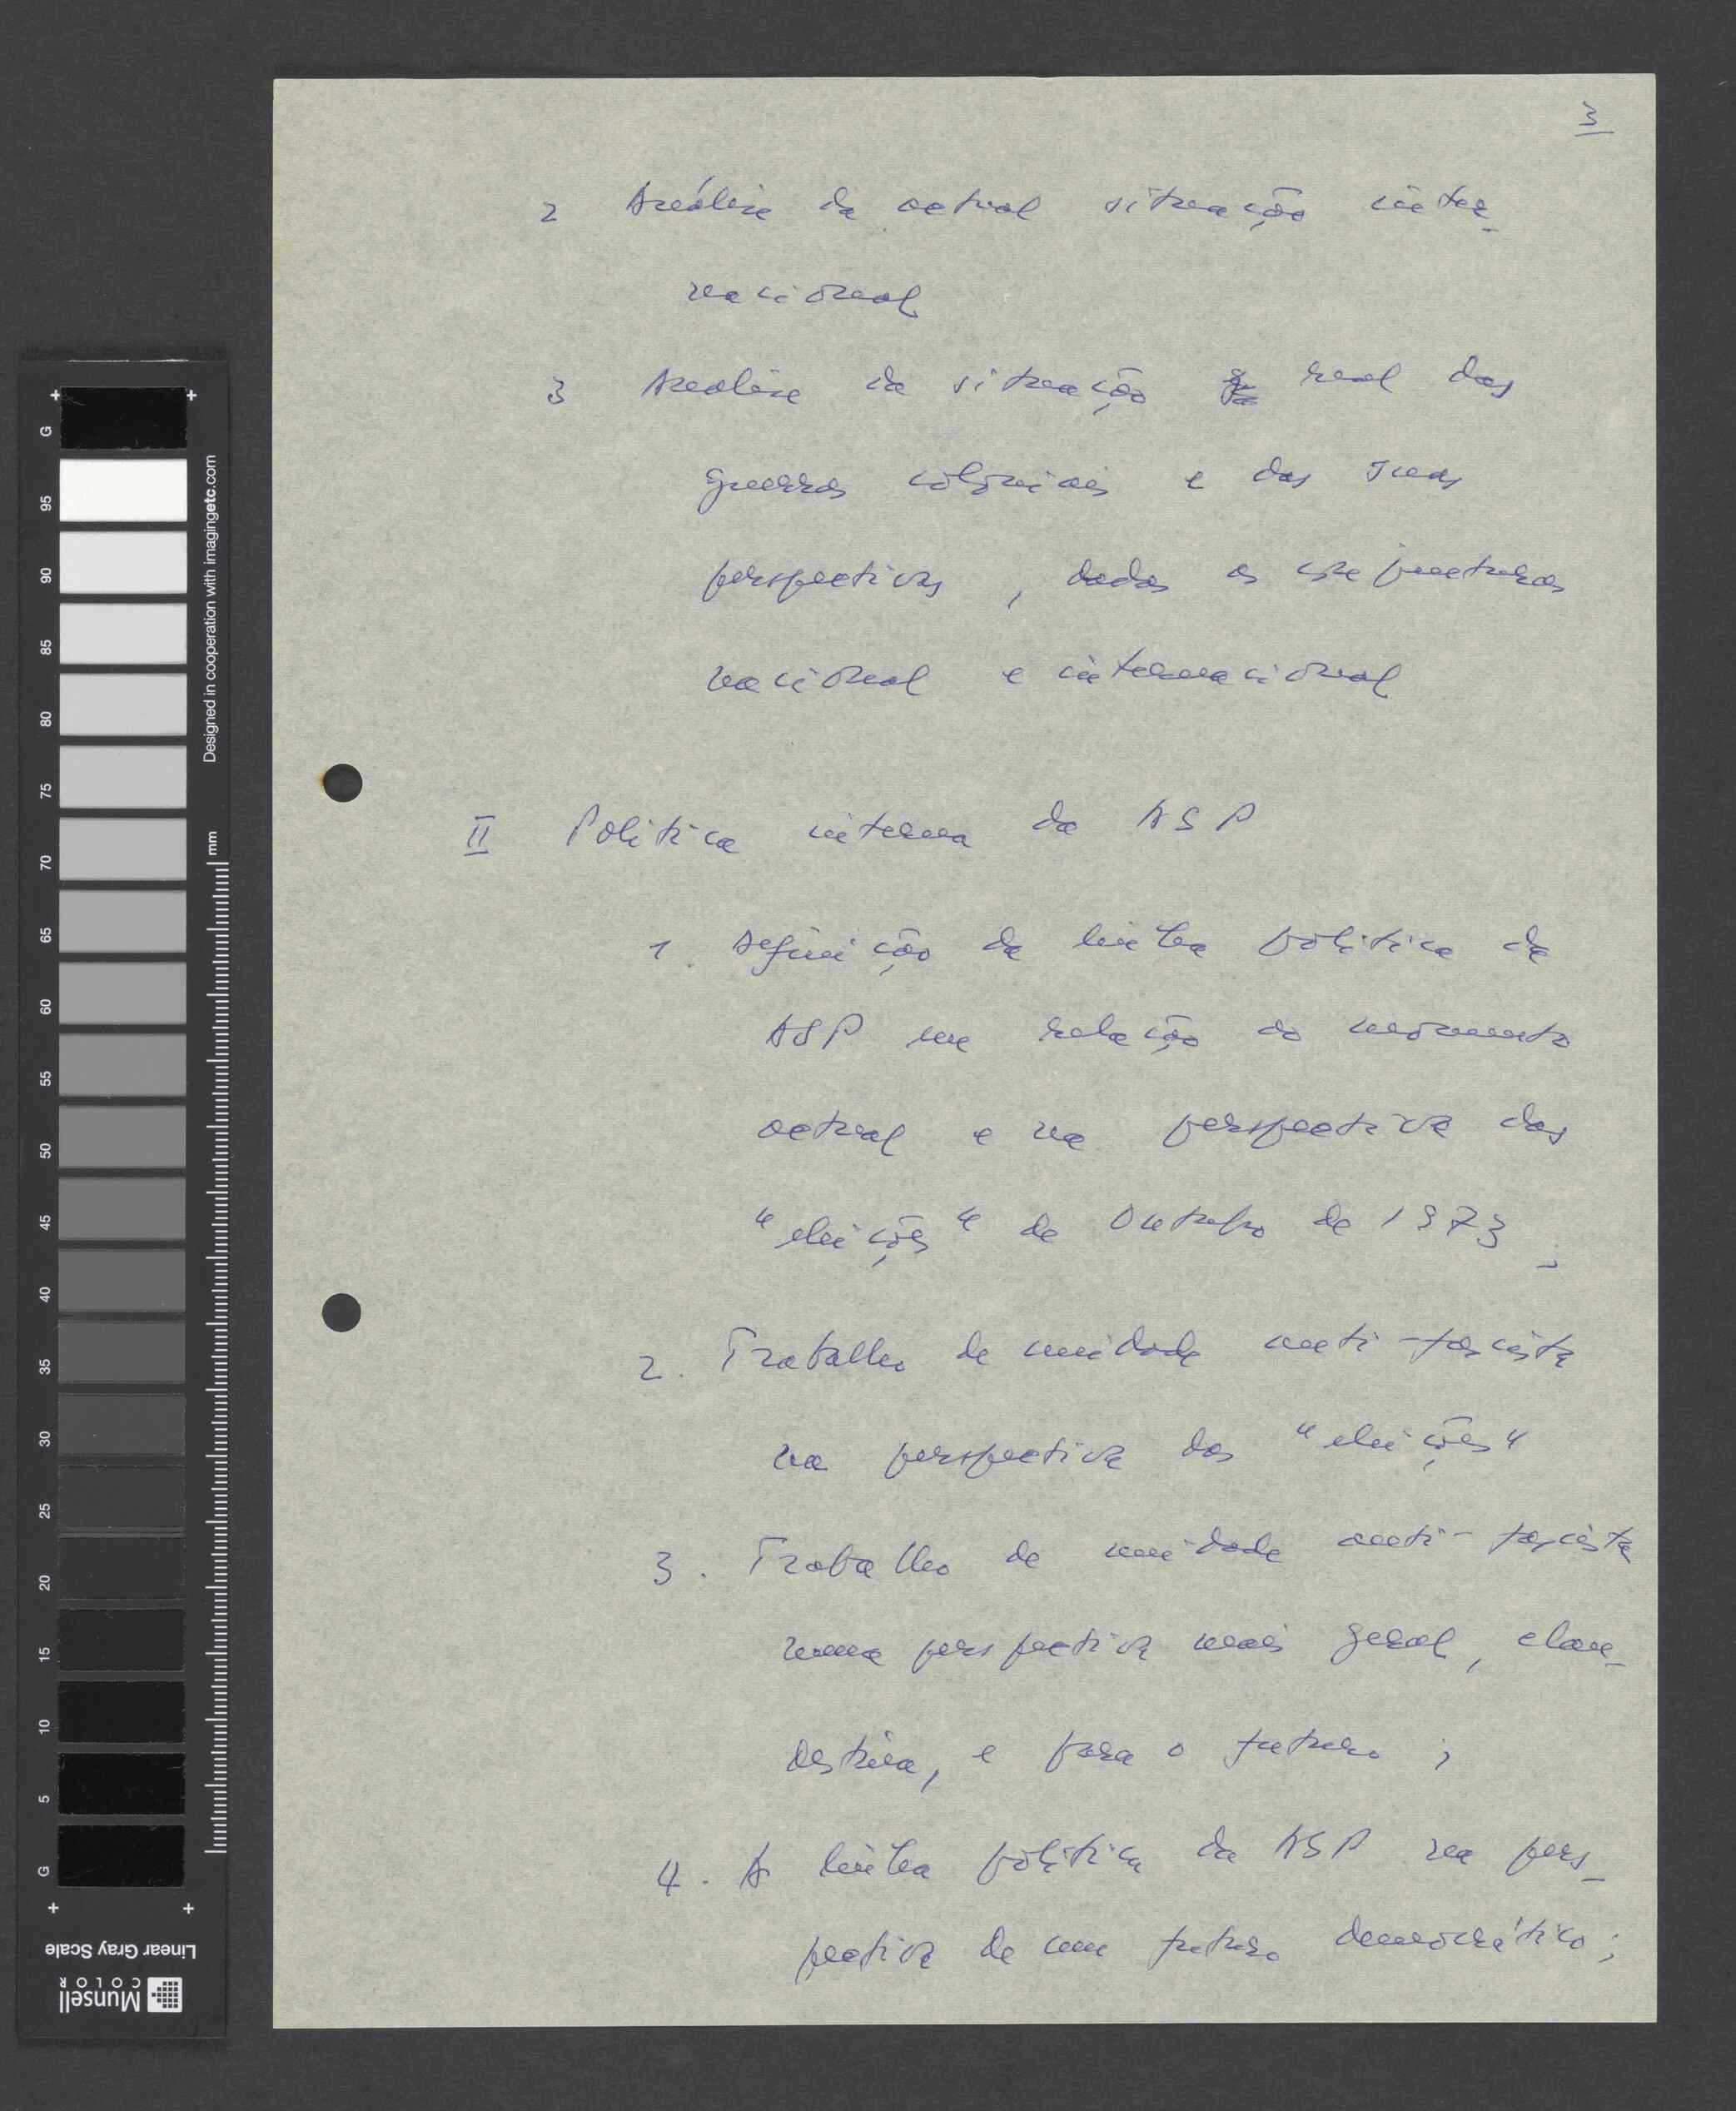 3
2 Análise da actual situação inter-
nacional
3 Análise da situação real das
guerras coloniais e das suas
perspectivas, dadas as conjunturas
nacional e internacional
II Politica interna da ASP
1. Definição da linha politica da
ASP em relação ao momento
actual e na perspectiva das
"eleições" de Outubro de 1973;
2. Trabalho de unidade anti-fascista
na perspectiva das "eleições"
3. Trabalho de unidade anti-fascista
numa perspectiva mais geral, clan-
destina, e para o futuro;
4. A linha politica da ASP na pers-
pectiva de um futuro democrático;
G
95
90
85
80
75
70
65
60
55
50
45
40
35
30
25
20
15
10
5
G
Designed in cooperation with imagingetc.com
mm
Linear Gray Scale
Munsell
COLOR